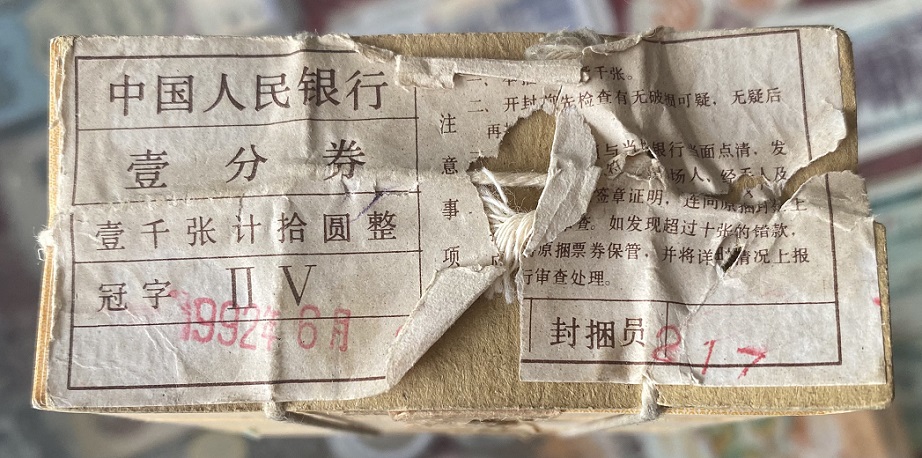 中国人民银行
壹分券
壹千张计拾圆整
冠字 ⅡV
1992年6月
注意事项
千张。
二、开封 先检查有无破损可疑，无疑后
再
与当 银行当面点清，发
场人，经 人及
签章证明，连同原捆 上
查。如发现超过十张的错款，
原捆票券保管，并将详 情况上报
行审查处理。
封捆员
217